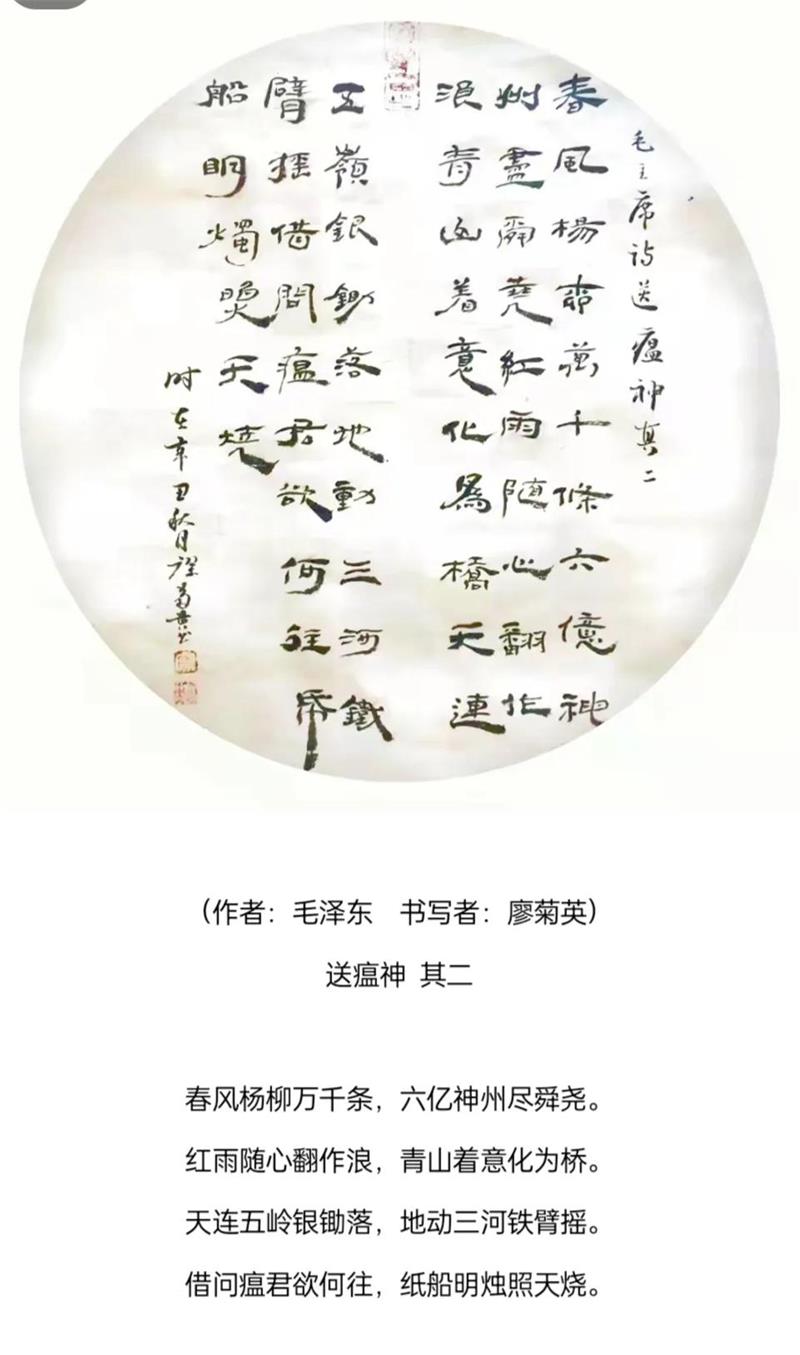 毛主席诗送瘟神其二
春風楊柳萬千條六億神
州盡舜堯紅雨随心翻作
浪青山着意化為橋天連
五嶺銀鋤落地動三河鐵
臂摇借問瘟君欲何往帋
船明燭照天燒
时在辛丑秋月
（作者：毛泽东 书写者：廖菊英）
送瘟神 其二
春风杨柳万千条，六亿神州尽舜尧。
红雨随心翻作浪，青山着意化为桥。
天连五岭银锄落，地动三河铁臂摇。
借问瘟君欲何往，纸船明烛照天烧。